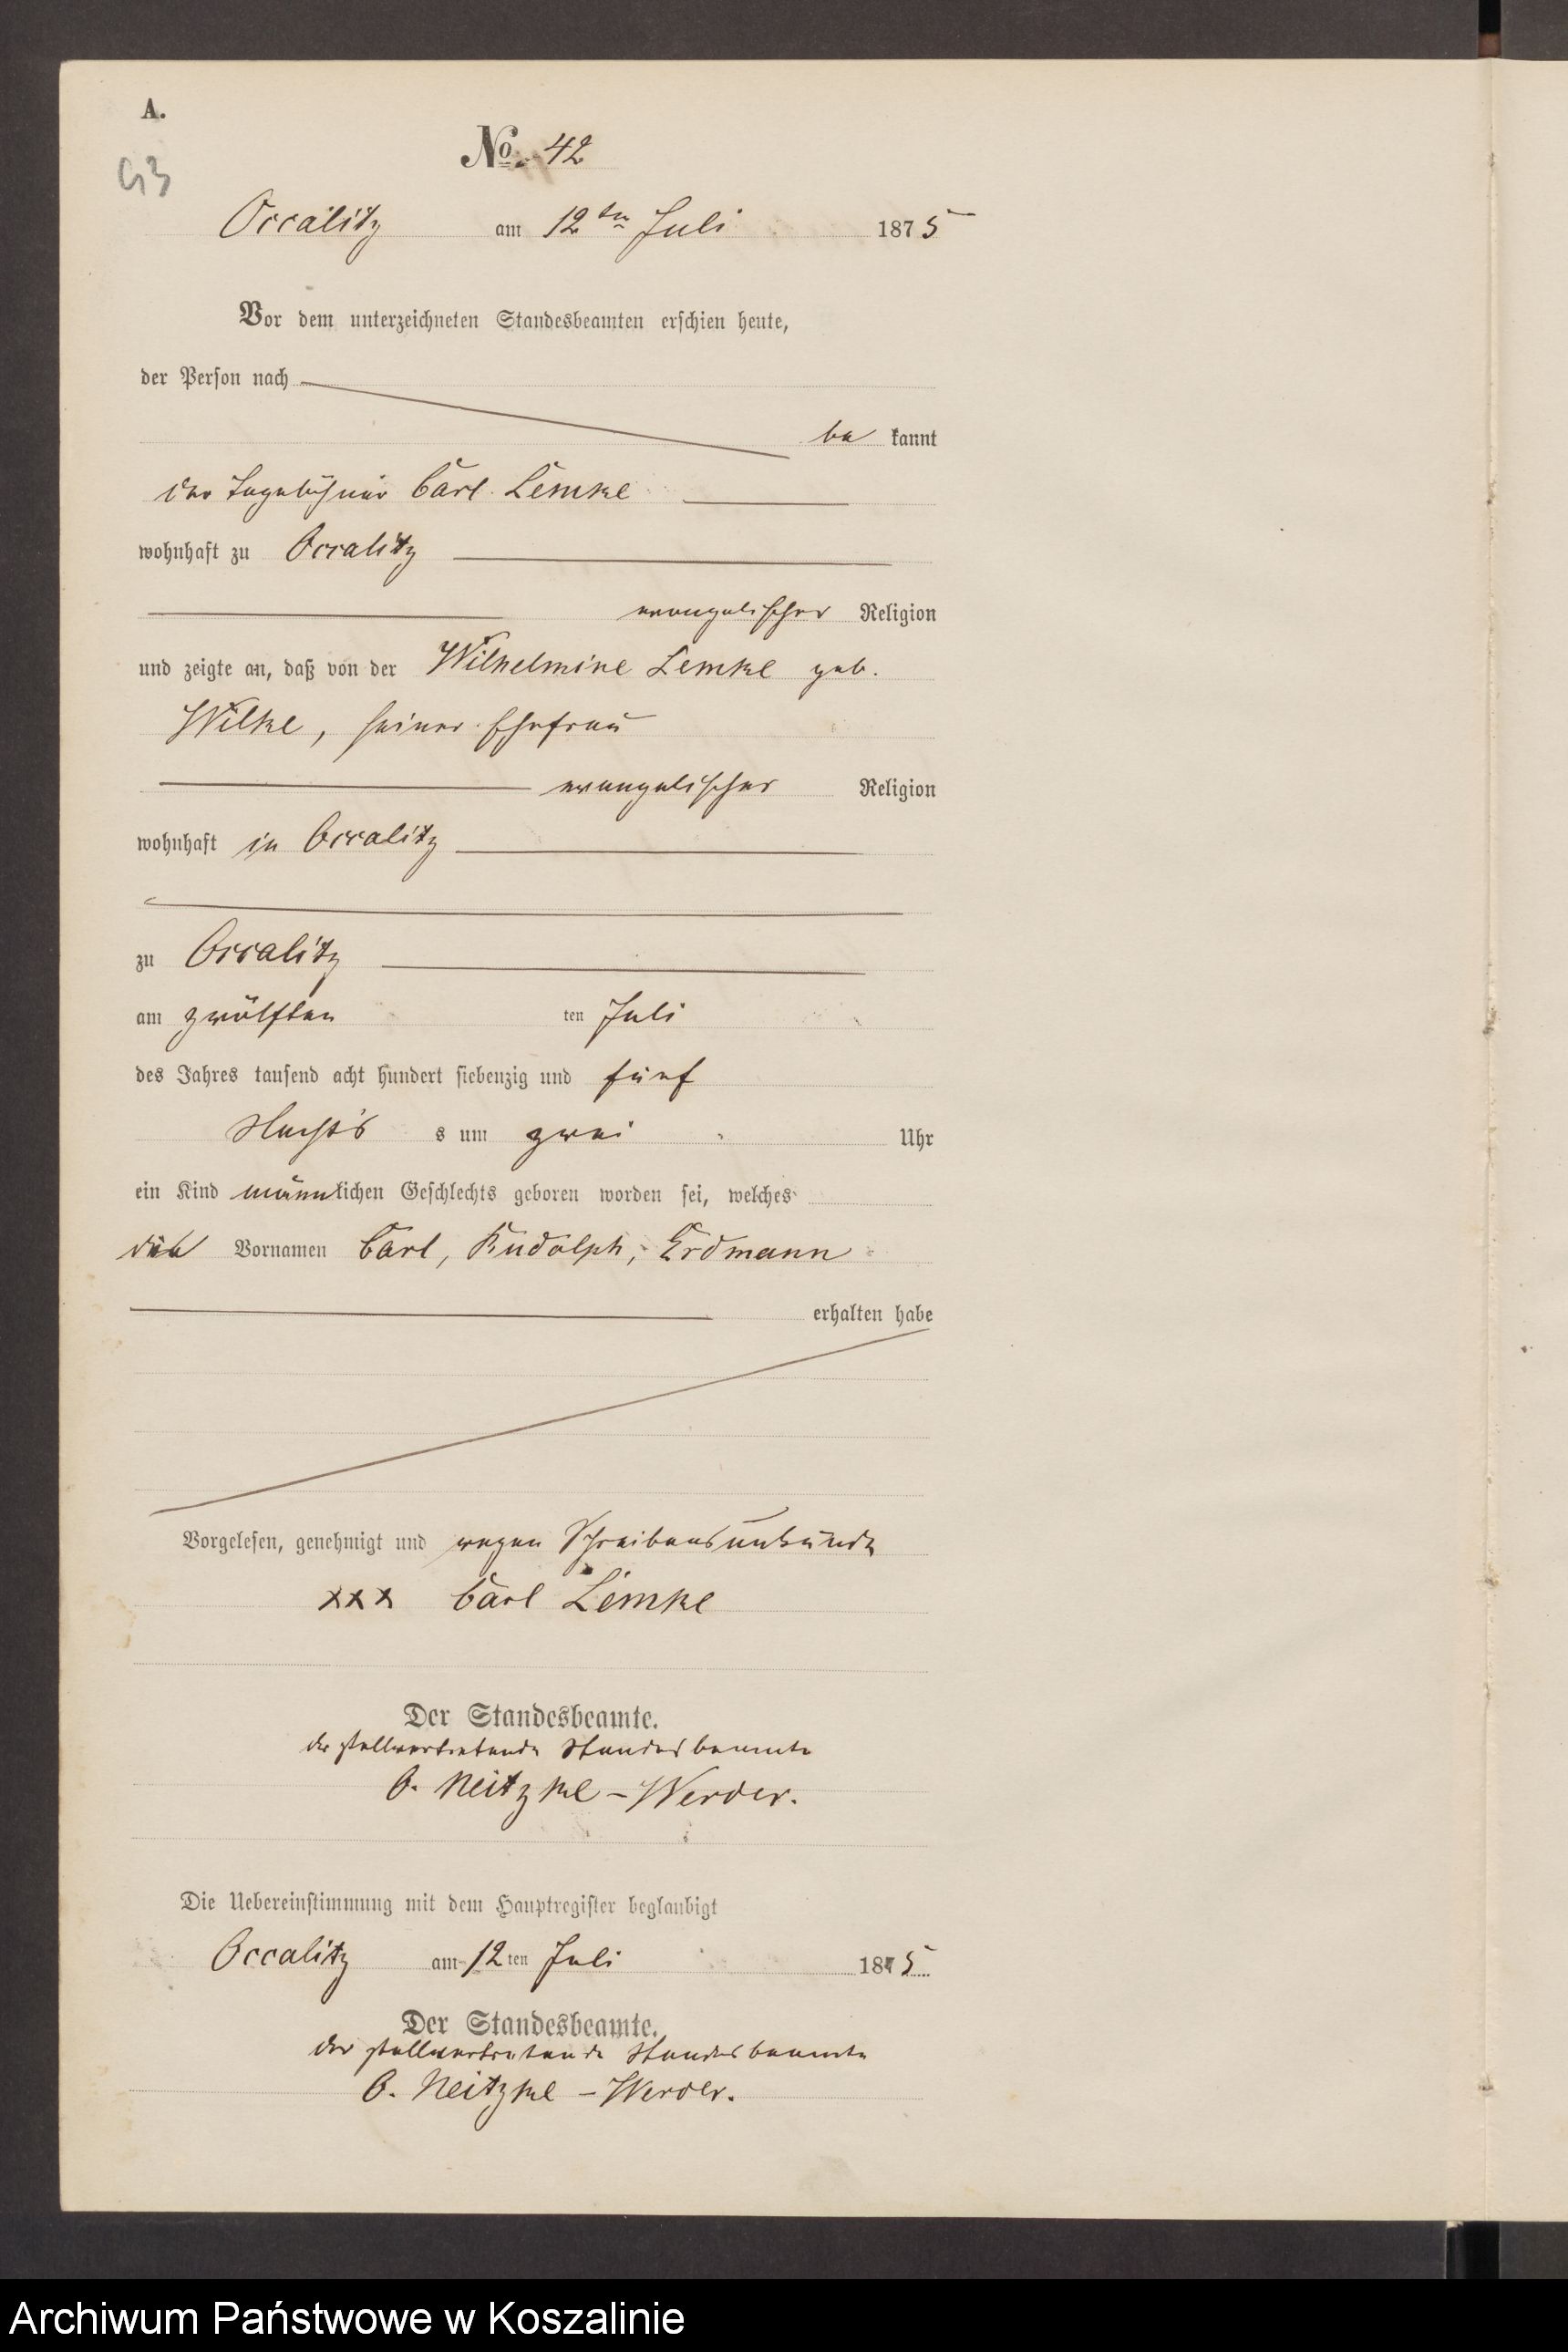 A.
No. 42
43
Occalitz am 12ten Juli 1875
Vor dem unterzeichneten Standesbeamten erschien heute,
der Person nach
be kannt
der Tagelöhner Carl Lemke
wohnhaft zu Occalitz
evangelischer Religion
und zeigte an, daß von der Wilhelmine Lemke geb.
Wilke, seiner Ehefrau
evangelischer Religion
wohnhaft in Occalitz
zu Occalitz
am zwölften ten Juli
des Jahres tausend acht hundert siebenzig und fünf
Nachts s um zwei Uhr
ein Kind männlichen Geschlechts geboren worden sei, welches
die Vornamen Carl, Rudolph, Erdmann
erhalten habe
Vorgelesen, genehmigt und wegen Schreibensunkunde
xxx Carl Lemke
Der Standesbeamte.
der stellvertretende Standesbeamte
O. Neitzke - Werder.
Die Uebereinstimmung mit dem Hauptregister beglaubigt
Occalitz am 12 ten Juli 1875
Der Standesbeamte.
der stellvertretende Standesbeamte
O. Neitzke - Werder.
Archiwum Państwowe w Koszalinie